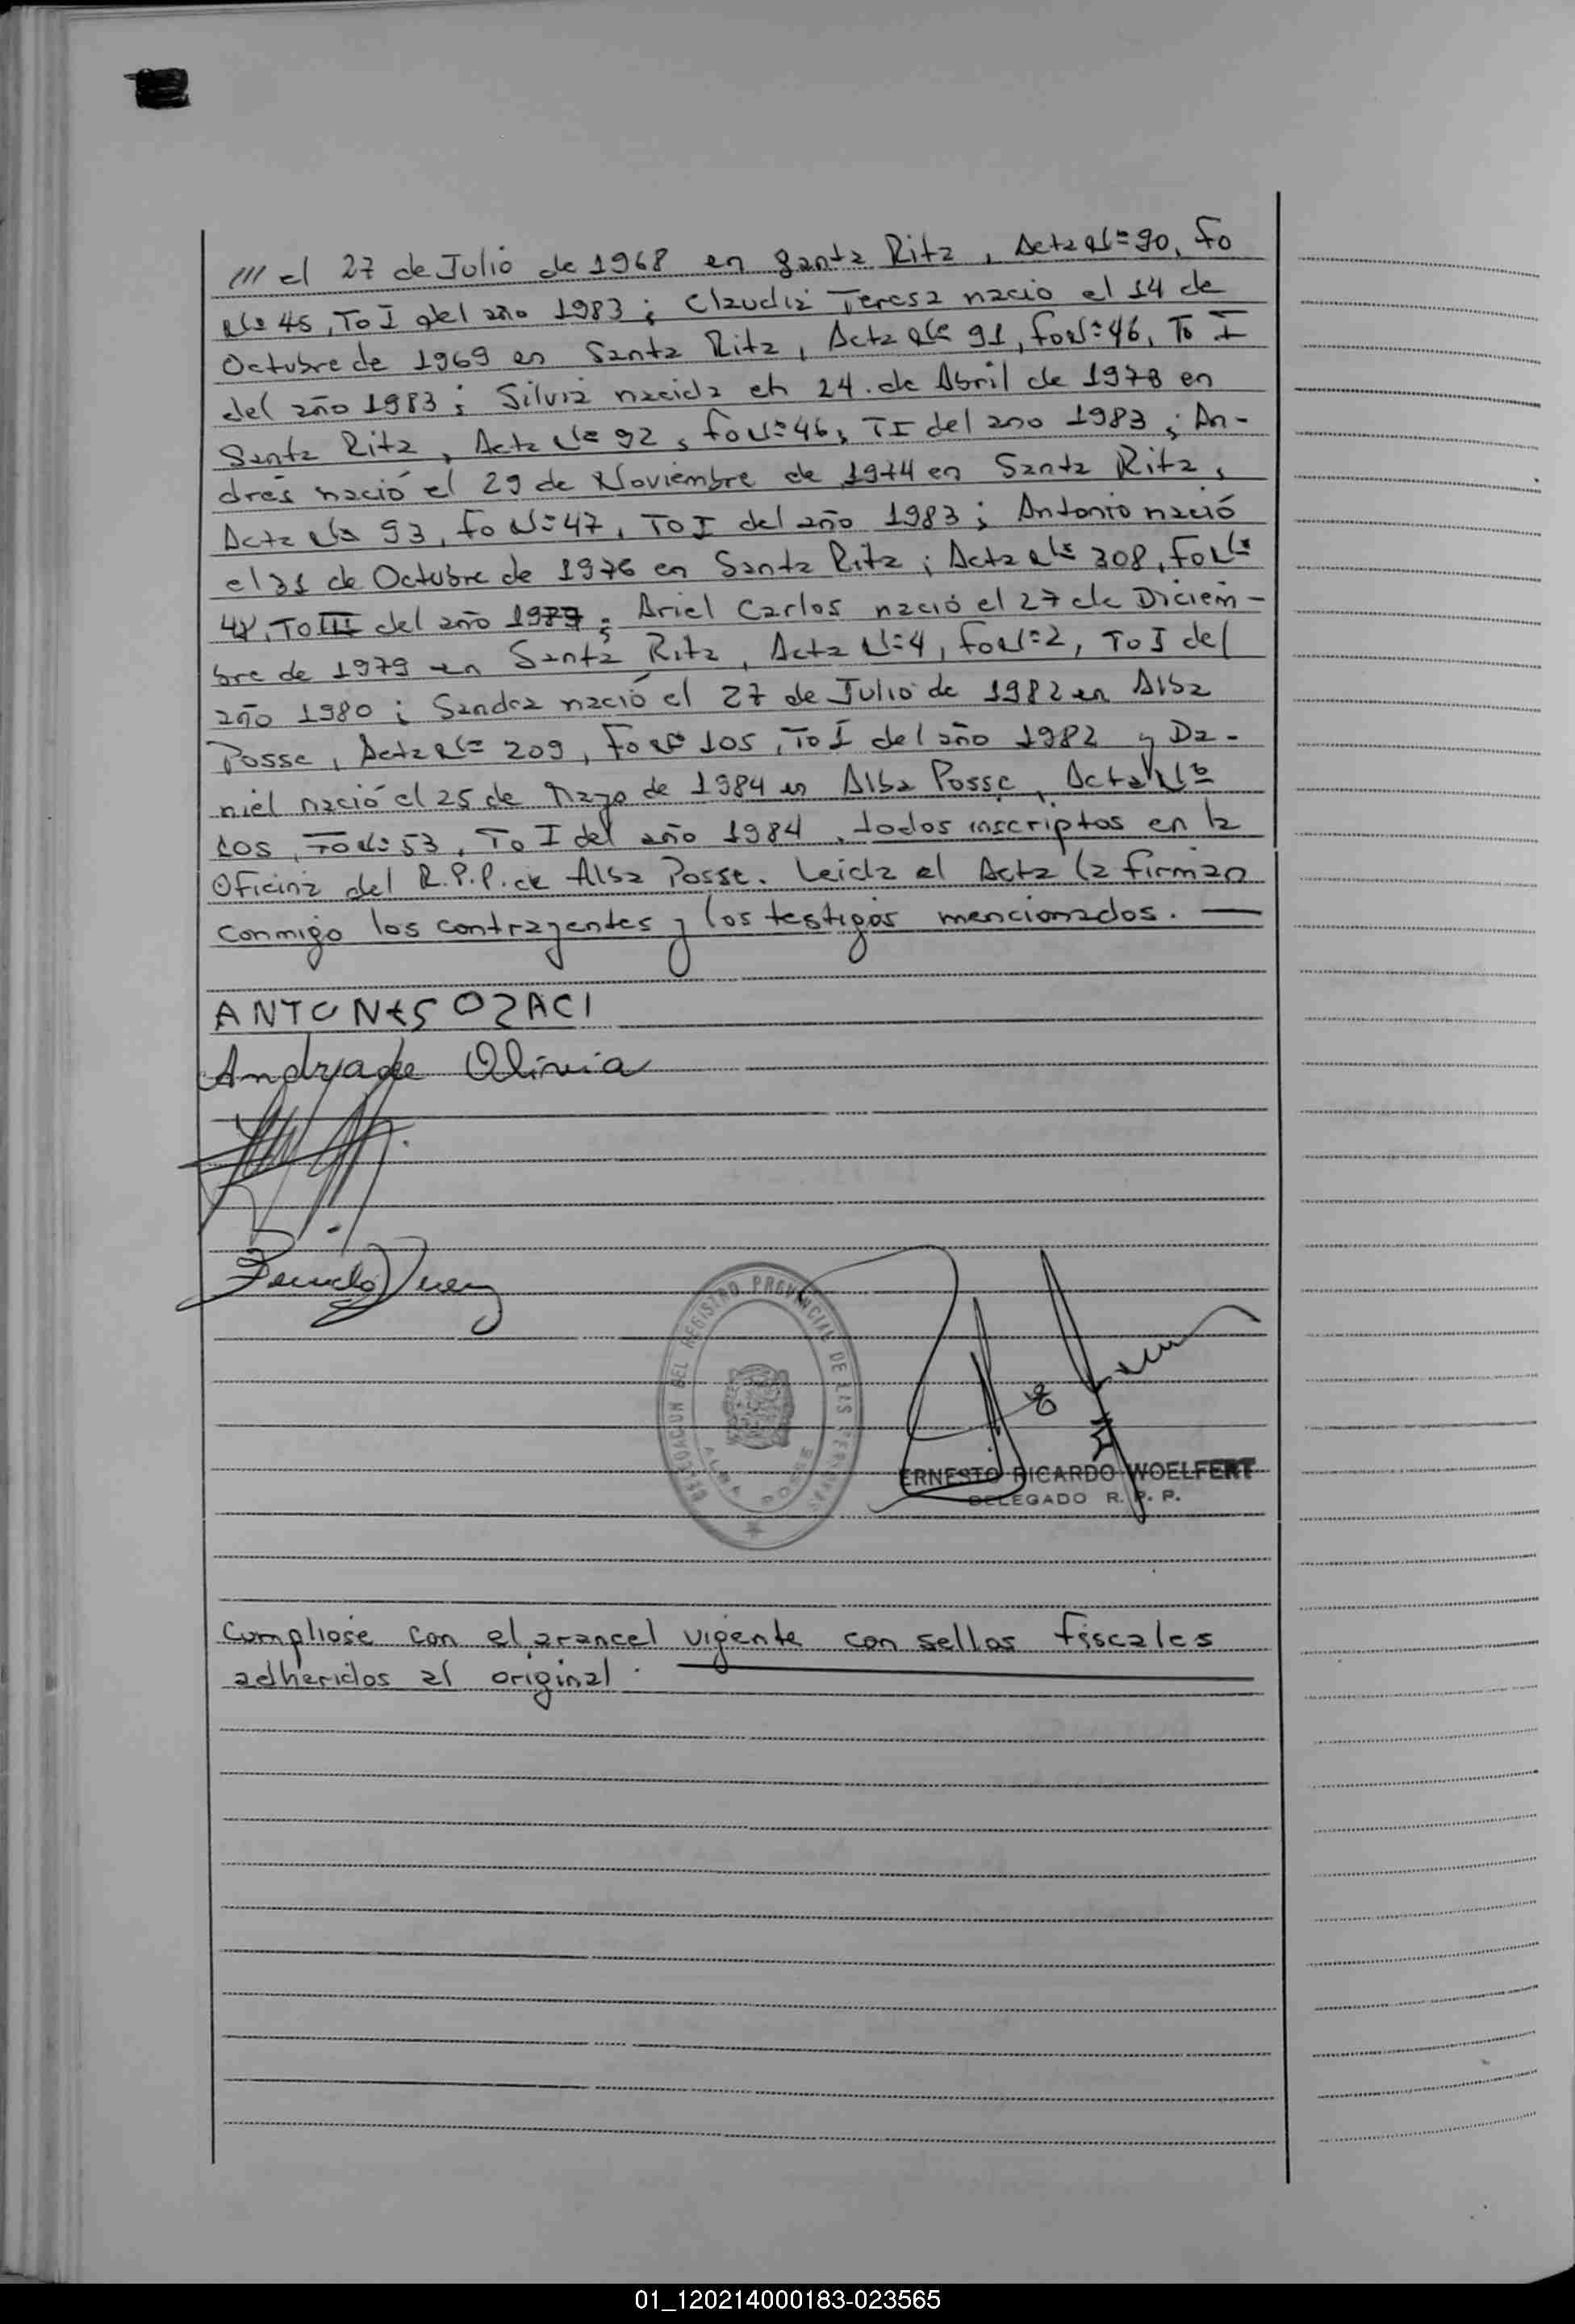 /// el 27 de Julio de 1968 en Santa Rita, Acta Nº 90, Fo
Nº 45, To I del año 1983; Claudia Teresa nacio el 14 de
Octubre de 1969 en Santa Rita, Acta Nº 91, Fo Nº 46, To I
del año 1983; Silvia nacida el 24 de Abril de 1973 en
Santa Rita, Acta Nº 92, Fo Nº 46, T I del año 1983; An-
drés nació el 29 de Noviembre de 1974 en Santa Rita,
Acta Nº 93, Fo Nº 47, To I del año 1983; Antonio nació
el 31 de Octubre de 1976 en Santa Rita; Acta Nº 308, Fo Nº
To III del año; Ariel Carlos nació el 27 de Diciem-
bre de 1979 en Santa Rita, Acta Nº 4, Fo Nº 2, To I del
año 1980; Sandra nació el 27 de Julio de 1982 en Alba
Posse, Acta Nº 209, Fo Nº 105, To I del año 1982 y Da-
niel nació el 25 de Mayo de 1984 en Alba Posse, Acta Nº
105, Fo Nº 53, To I del año 1984, todos inscriptos en la
Oficina del R.P.P. de Alba Posse. Leida el Acta la firman
conmigo los contrayentes y los testigos mencionados.
ANTUNES OZACI
Andrade Olivia
DELEGACION DEL REGISTRO PROVINCIAL DE LAS PERSONAS
ALBA POSSE
ERNESTO RICARDO WOELFERT
DELEGADO R. P. P.
Cumpliose con el arancel vigente con sellos fiscales
adheridos al original.
01_120214000183-023565